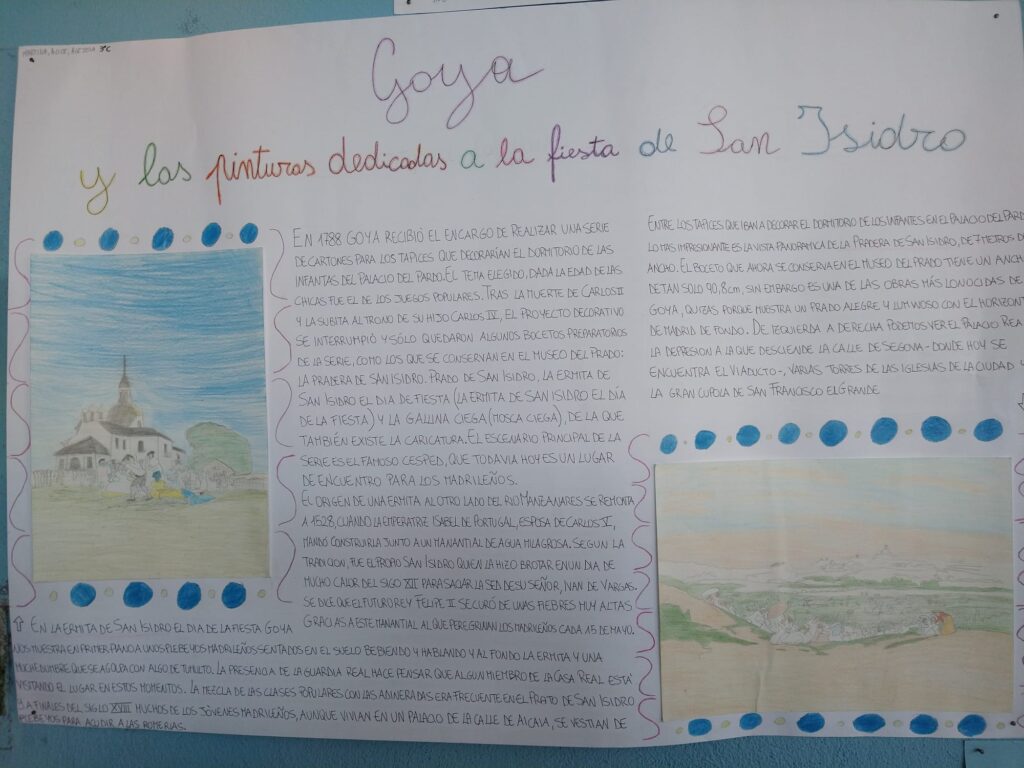 3ºC
Goya
y las pinturas dedicadas a la fiesta de San Isidro
EN 1788 GOYA RECIBIÓ EL ENCARGO DE REALIZAR UNA SERIE
DE CARTONES PARA LOS TAPICES QUE DECORARÍAN EL DORMITORIO DE LAS
INFANTAS DEL PALACIO DEL PARDO. EL TEMA ELEGIDO, DADA LA EDAD DE LAS
CHICAS FUE EL DE LOS JUEGOS POPULARES. TRAS LA MUERTE DE CARLOS II
Y LA SUBITA AL TRONO DE SU HIJO CARLOS IV, EL PROYECTO DECORATIVO
SE INTERRUMPIÓ Y SÓLO QUEDARON ALGUNOS BOCETOS PREPARATORIOS
DE LA SERIE, COMO LOS QUE SE CONSERVAN EN EL MUSEO DEL PRADO:
LA PRADERA DE SAN ISIDRO. PRADO DE SAN ISIDRO, LA ERMITA DE
SAN ISIDRO EL DIA DE FIESTA (LA ERMITA DE SAN ISIDRO EL DÍA
DE LA FIESTA) Y LA GALLINA CIEGA (MOSCA CIEGA), DE LA QUE
TAMBIÉN EXISTE LA CARICATURA. EL ESCENARIO PRINCIPAL DE LA
SERIE ES EL FAMOSO CESPED, QUE TODAVIA HOY ES UN LUGAR
DE ENCUENTRO PARA LOS MADRILEÑOS.
EL ORIGEN DE UNA ERMITA AL OTRO LADO DEL RIO MANZANARES SE REMONTA
A 1528, CUANDO LA EMPERATRIZ ISABEL DE PORTUGAL, ESPOSA DE CARLOS V,
MANDÓ CONSTRUIRLA JUNTO A UN MANANTIAL DE AGUA MILAGROSA. SEGUN LA
TRADICION, FUE EL PROPIO SAN ISIDRO QUIEN LA HIZO BROTAR EN UN DIA DE
MUCHO CALOR DEL SIGO XII PARA SACIAR LA SED DE SU SEÑOR, IVAN DE VARGAS.
SE DICE QUE EL FUTURO REY FELIPE II SE CURÓ DE UNAS FIEBRES MUY ALTAS
GRACIAS A ESTE MANANTIAL AL QUE PEREGRINAN LOS MADRILEÑOS CADA 15 DE MAYO.
⇧ EN LA ERMITA DE SAN ISIDRO EL DIA DE LA FIESTA GOYA
NOS MUESTRA EN PRIMER PLANO A UNOS PLEBEYOS MADRILEÑOS SENTADOS EN EL SUELO BEBIENDO Y HABLANDO Y AL FONDO LA ERMITA Y UNA
MUCHEDUMBRE QUE SE AGOLPA CON ALGO DE TUMULTO. LA PRESENCIA DE LA GUARDIA REAL HACE PENSAR QUE ALGUN MIEMBRO DE LA CASA REAL ESTÁ
VISITANDO EL LUGAR EN ESTOS MOMENTOS. LA MEZCLA DE LAS CLASES POPULARES CON LAS ADINERADAS ERA FRECUENTE EN EL PRATO DE SAN ISIDRO
Y A FINALES DEL SIGLO XVIII MUCHOS DE LOS JÓVENES MADRILEÑOS, AUNQUE VIVIAN EN UN PALACIO DE LA CALLE DE ALCALA, SE VESTIAN DE
PLEBEYOS PARA ACUDIR A LAS ROMERIAS.
ENTRE LOS TAPICES QUE IBAN A DECORAR EL DORMITORIO DE LOS INFANTES EN EL PALACIO DEL PARD
LO MAS IMPRESIONANTE ES LA VISTA PANORAMICA DE LA PRADERA DE SAN ISIDRO, DE 7 METROS D
ANCHO. EL BOCETO QUE AHORA SE CONSERVA EN EL MUSEO DEL PRADO TIENE UN ANCH
DE TAN SOLO 90,8cm, SIN EMBARGO ES UNA DE LAS OBRAS MÁS CONOCIDAS DE
GOYA, QUIZAS PORQUE MUESTRA UN PRADO ALEGRE Y LUMINOSO CON EL HORIZONT
DE MADRID DE FONDO. DE IZQUIERDA A DERECHA PODEMOS VER EL PALACIO REA
LA DEPRESION A LA QUE DESCIENDE LA CALLE DE SEGOVIA - DONDE HOY SE
ENCUENTRA EL VIADUCTO -, VARIAS TORRES DE LAS IGLESIAS DE LA CIUDAD Y
LA GRAN CUPOLA DE SAN FRANCISCO EL GRANDE